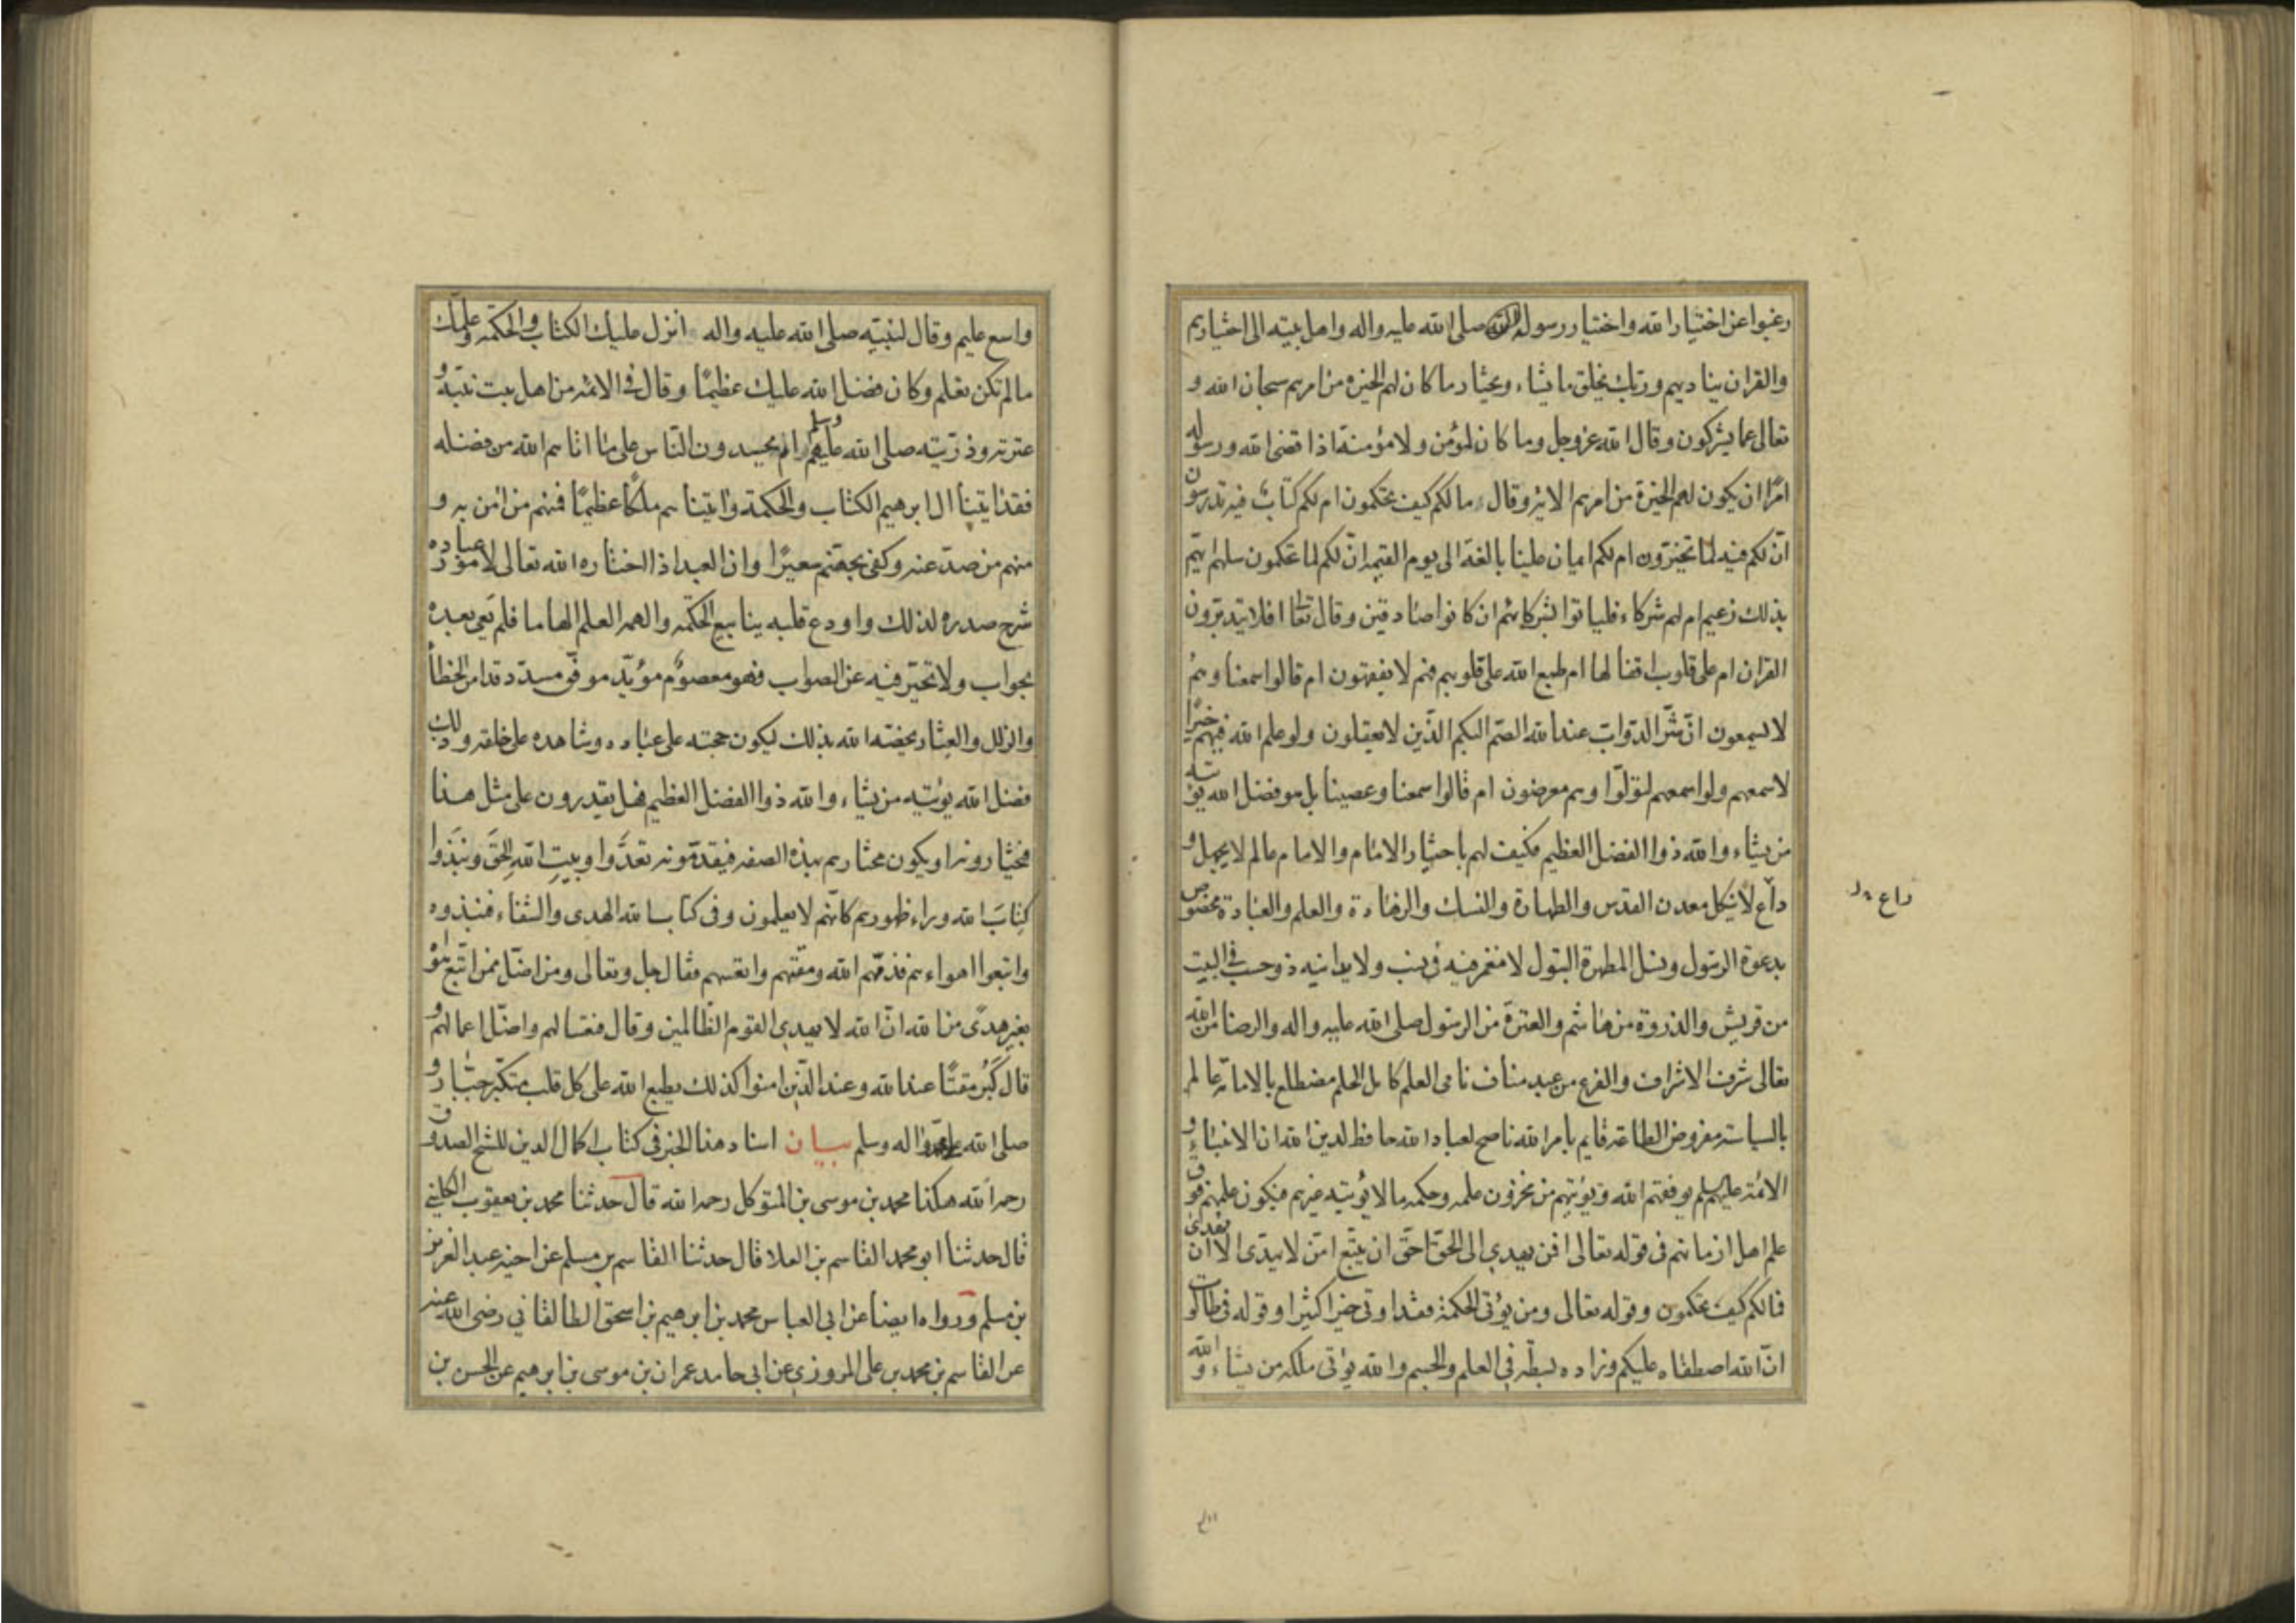 رغبوا عن اختيار الله واختيار رسوله صلى الله عليه واله واهل بيته الى اختيارهم
والقران يناديهم وربك يخلق ما يشاء ويختار ما كان لهم الخيرة من امرهم سبحان الله و
تعالى عما يشركون وقال الله عز وجل وما كان لمؤمن ولا مؤمنة اذا قضى الله ورسوله
امرًا ان يكون لهم الخيرة من امرهم الاية وقال مالكم كيف تحكمون ام لكم كتابٌ فيه تدرسون
انّ لكم فيه لما تخيّرون ام لكم ايمان علينا بالغة الى يوم القيمة انّ لكم لما تحكمون سلهم ايهم
بذلك زعيم ام لهم شركاء فلياتوا بشركائهم ان كانوا صادقين وقال تعا افلا يتدبرون
القران ام على قلوب اقفالها ام طبع الله على قلوبهم فهم لا يفقهون ام قالوا سمعنا وهُم
لا يسمعون انّ شرّ الدوّاب عند الله الصّم البكم الذّين لا يعقلون ولو علم الله فيهم خيرًا
لاسمعهم ولو اسمعهم لتولّوا وهم معرضون ام قالوا سمعنا وعصينا بل هو فضل الله يؤتيه
من يشاء والله ذوا الفضل العظيم فكيف لهم باختيار الامام والامام عالم لا يجهل و
داع لا ينكل معدن القدس والطهارة والنسك والزهادة والعلم والعبادة مخصوص
بدعوة الرسول ونسل المطهرة البتول لا مغمز فيه في نسب ولا يدانيه ذو حسب في البيت
من قريش والذروة من هاشم والعترة من الرسول صلى الله عليه واله والرضا من الله
تعالى شرف الاشراف والفرع من عبد مناف نامى العلم كامل الحلم مضطلع بالامامة عالم
بالسياسة مفروض الطاعة قايم بامر الله ناصح لعباد الله حافظ لدين الله ان الانبياء و
الائمة عليهم يوفقهم الله ويؤتيهم من مخزون علمه وحكمه ما لا يؤتيه غيرهم فيكون علمهم فوق
علم اهل ازمانهم فى قوله تعالى افمن يهدي الى الحق احقّ ان يتّبع امّن لا يهدّى الا ان يهدى
فمالكم كيف تحكمون وقوله تعالى ومن يؤتى الحكمة فقد اوتى خيرا كثيرا وقوله في طالوت
انّ الله اصطفاه عليكم وزاده بسطة في العلم والجسم والله يؤتى ملكه من يشاء والله
داع
واسع عليم وقال لنبيّه صلى الله عليه واله انزل عليك الكتاب والحكمة وعلمك
ما لم تكن تعلم وكان فضل الله عليك عظيمًا وقال في الائمة من اهل بيت نبيّه و
عترته وذرّيّته صلى الله عليهم وسلم ام يحسدون النّاس على ما اتاهم الله من فضله
فقد اتينا ال ابرهيم الكتاب والحكمة واتيناهم ملكًا عظيمًا فمنهم من امن به و
منهم من صدّ عنه وكفى بجهنّم سعيرًا وان العبد اذا اختاره الله تعالى لامور عباده
شرح صدره لذلك واودع قلبه ينابيع الحكمة والهمه العلم الهاما فلم يعى بعده
بجواب ولا تحيّر فيه عن الصواب فهو معصومٌ مؤيّد موفّق مسدّد قد امن الخطأ
والزلل والعثار يخصّه الله بذلك ليكون حجته على عباده وشاهده على خلقه وذلك
فضل الله يؤتيه من يشاء والله ذوا الفضل العظيم فهل يقدرون على مثل هذا
فيختارونه او يكون مختارهم بهذه الصفة فيقدّمونه تعدَّوا وبيتِ الله الحقَ ونبَذُوا
كِتابَ الله وراء ظهورهم كانّهم لا يعلمون وفي كتاب الله الهدى والشفاء فنبذوه
واتبعوا اهواءهم فذمّهم الله ومقتهم واتعسهم فقال جل وتعالى ومن اضلّ ممن اتّبع هواه
بغير هدىً من الله انّ الله لا يهدى القوم الظّالمين وقال فتعسا لهم واضلّ اعمالهم و
قال كَبُرَ مقتًا عند الله وعند الذّين امنوا كذلك يطبع الله على كل قلب متكبّر جبّار و
صلى الله على محمد واله وسلم بيان اسناد هذا الخبر في كتاب اكمال الدين للشيخ الصدوق
رحمه الله هكذا محمد بن موسى بن المتوكل رحمه الله قال حدثنا محمد بن يعقوب الكلينى
قال حدثنا ابو محمد القاسم بن العلا قال حدثنا القاسم بن مسلم عن اخيه عبد العزيز
بن مسلم ورواه ايضا عن ابي العباس محمد بن ابرهيم بن اسحق الطالقاني رضى الله عنه
عن القاسم بن محمد بن على المروزي عن ابي حامد عمران بن موسى بن ابرهيم عن الحسن بن